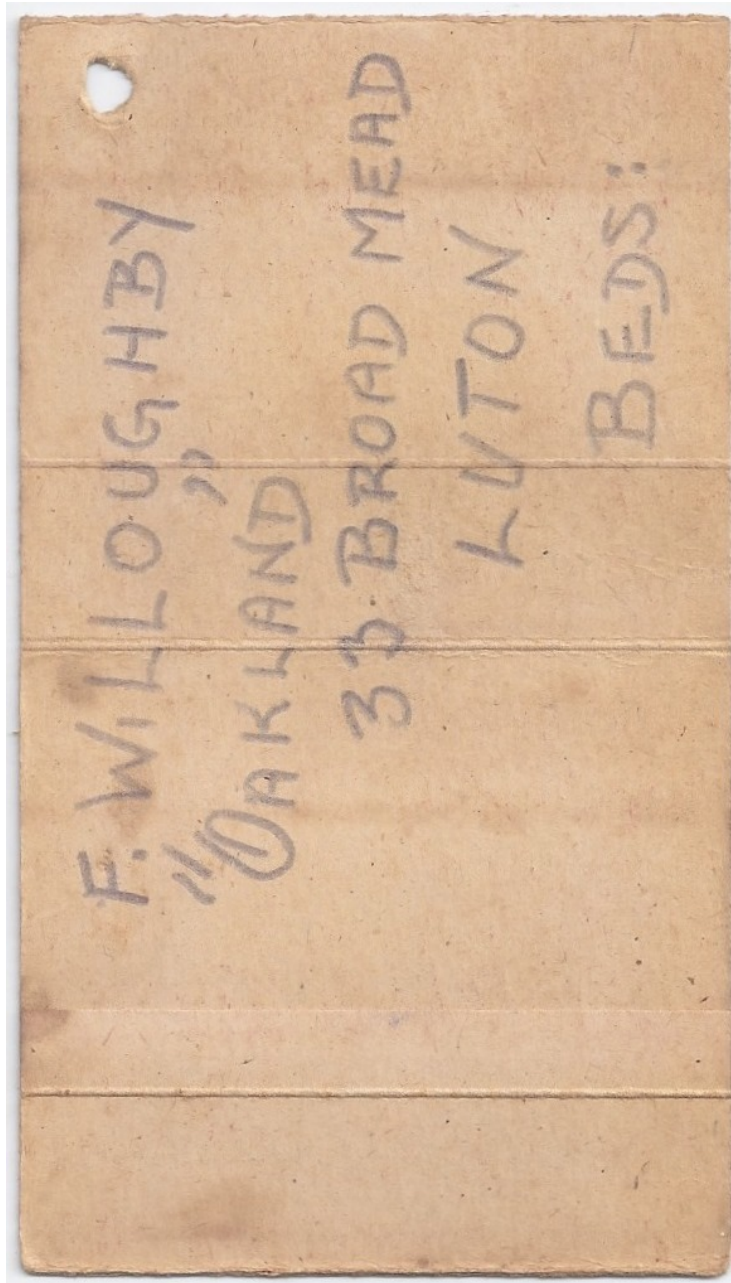 F. WILLOUGHBY
"OAKLAND"
33 BROAD MEAD
LUTON
BEDS: